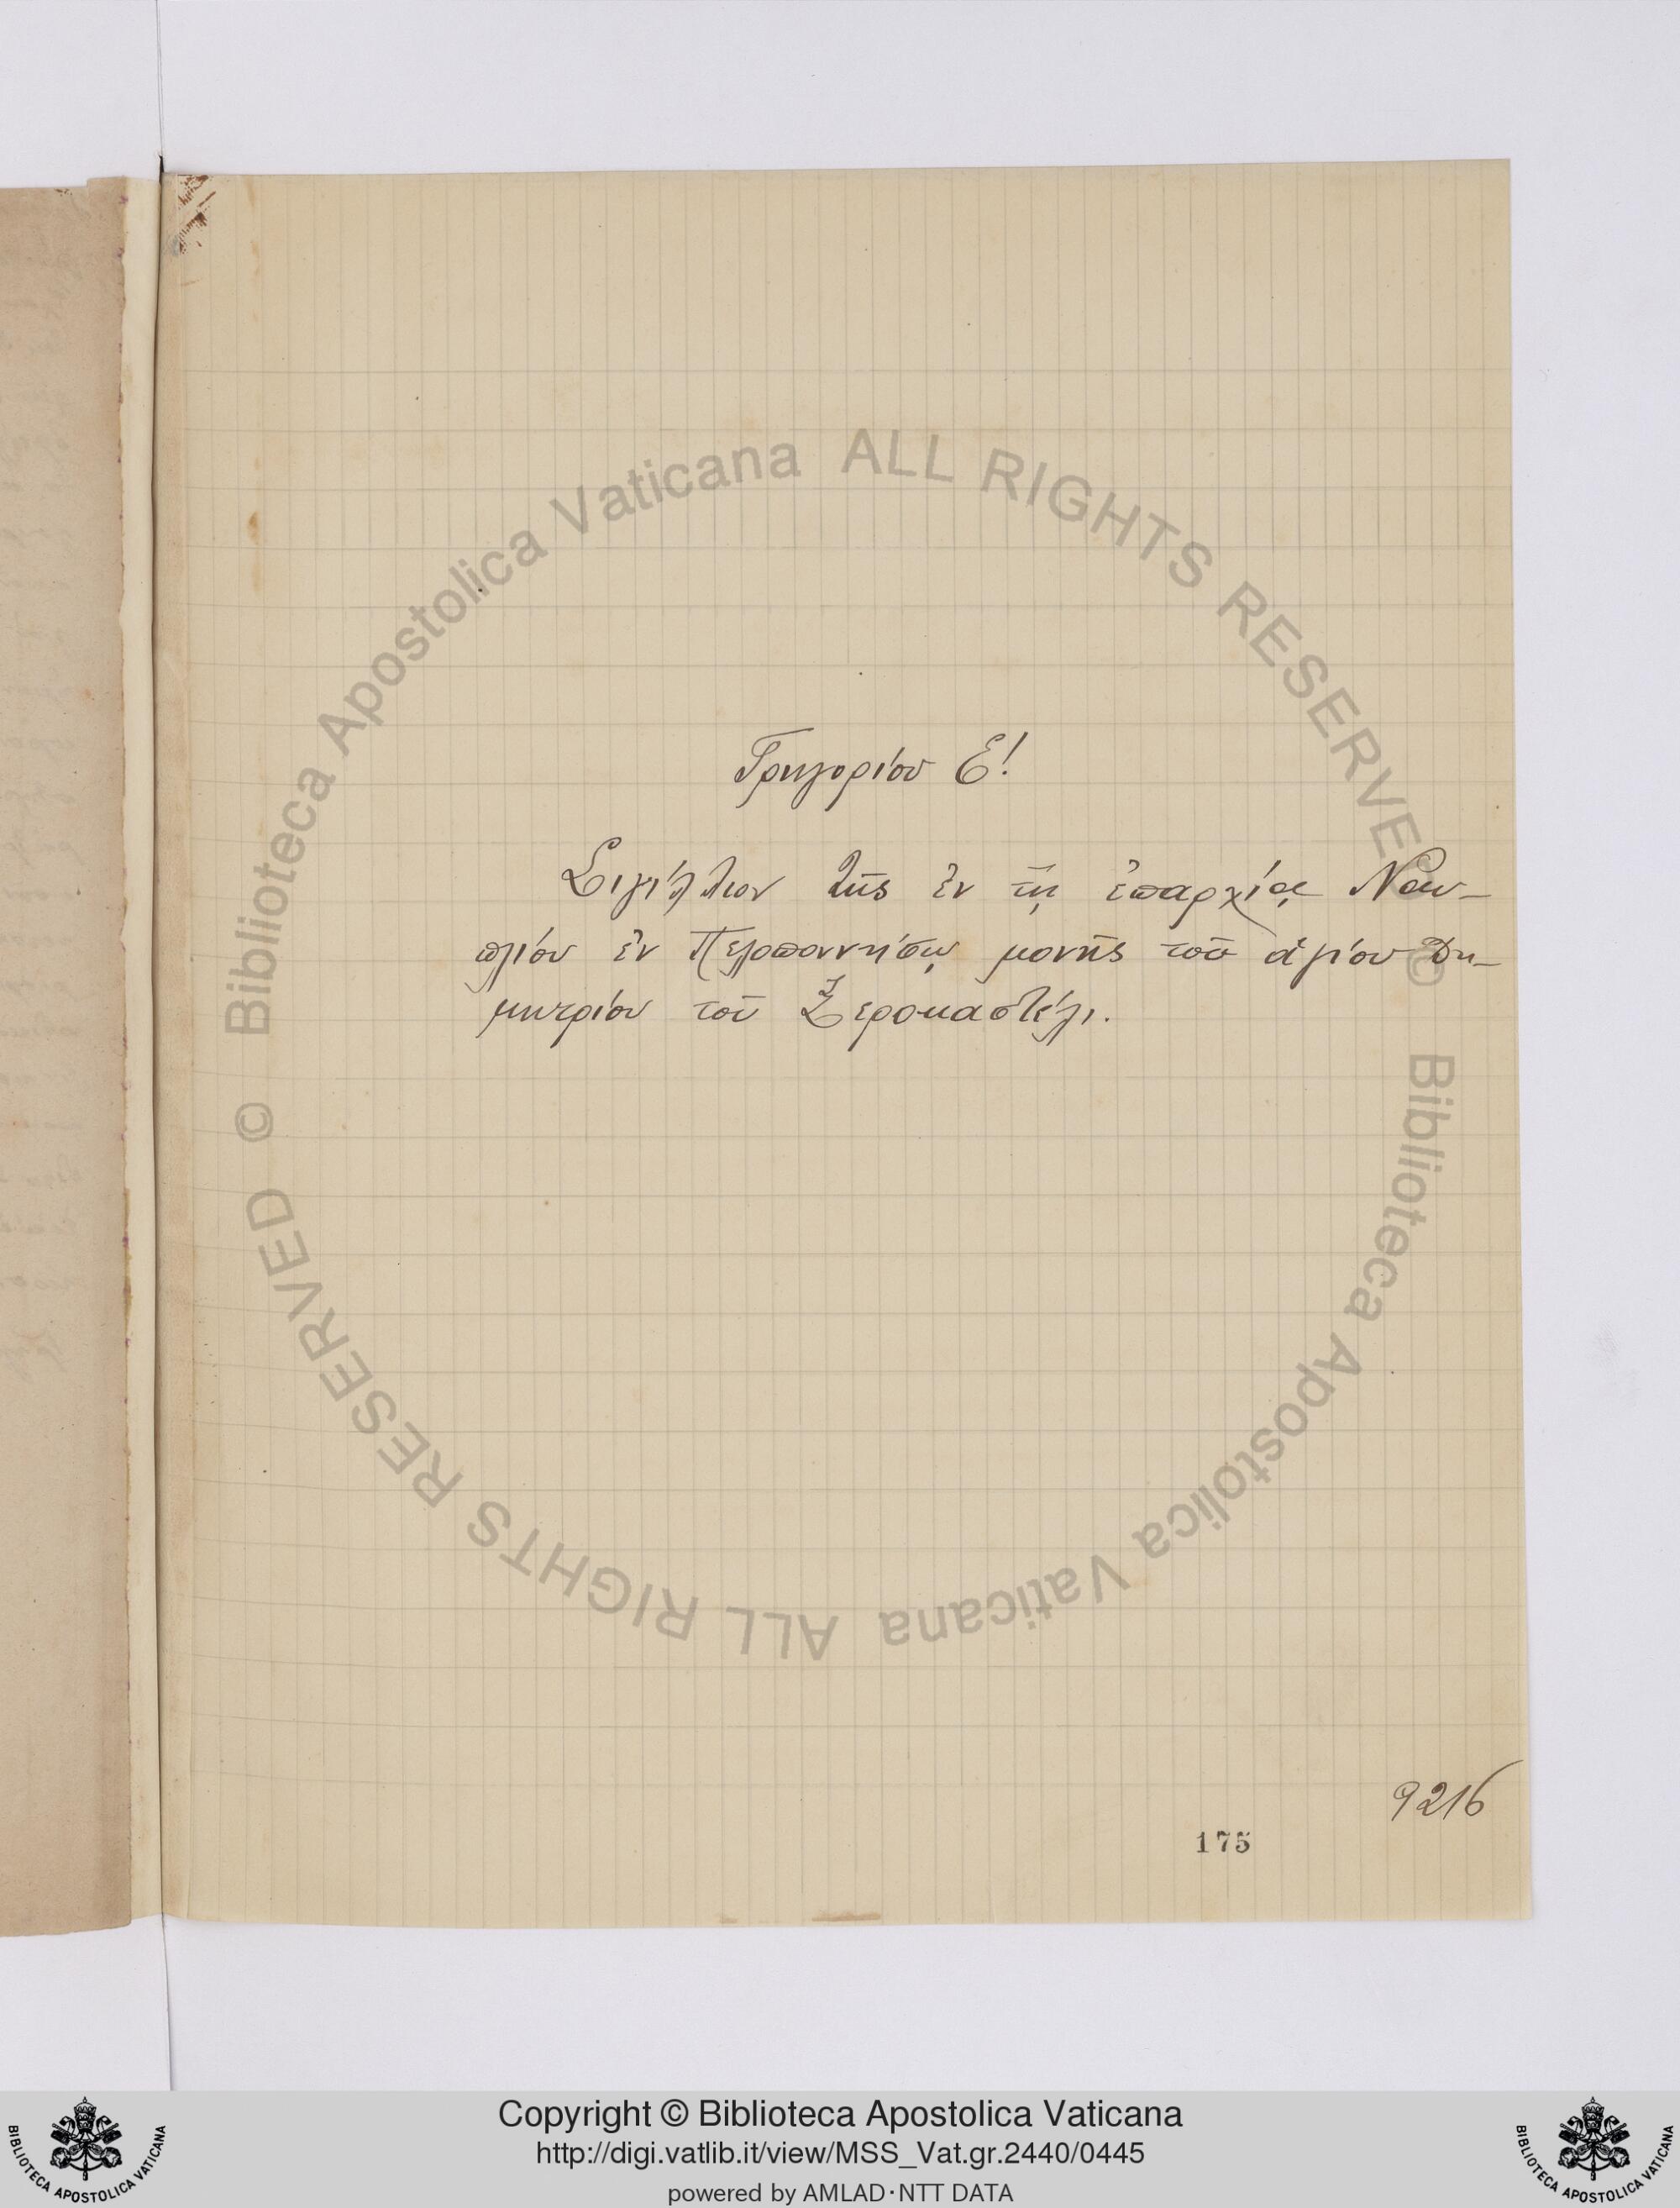 Γρηγορίου Ε!
Σιγίλλιον τῆς ἐν τῇ ἐπαρχίᾳ Ναυ-
πλίου ἐν Πελοποννήσῳ μονῆς τοῦ ἁγίου Δη-
μητρίου τοῦ Ξεροκαστέλι.
9216
175
Biblioteca Apostolica Vaticana ALL RIGHTS RESERVED ©
Biblioteca Apostolica Vaticana ALL RIGHTS RESERVED ©
Copyright © Biblioteca Apostolica Vaticana
http://digi.vatlib.it/view/MSS_Vat.gr.2440/0445
powered by AMLAD·NTT DATA
BIBLIOTECA APOSTOLICA VATICANA
BIBLIOTECA APOSTOLICA VATICANA